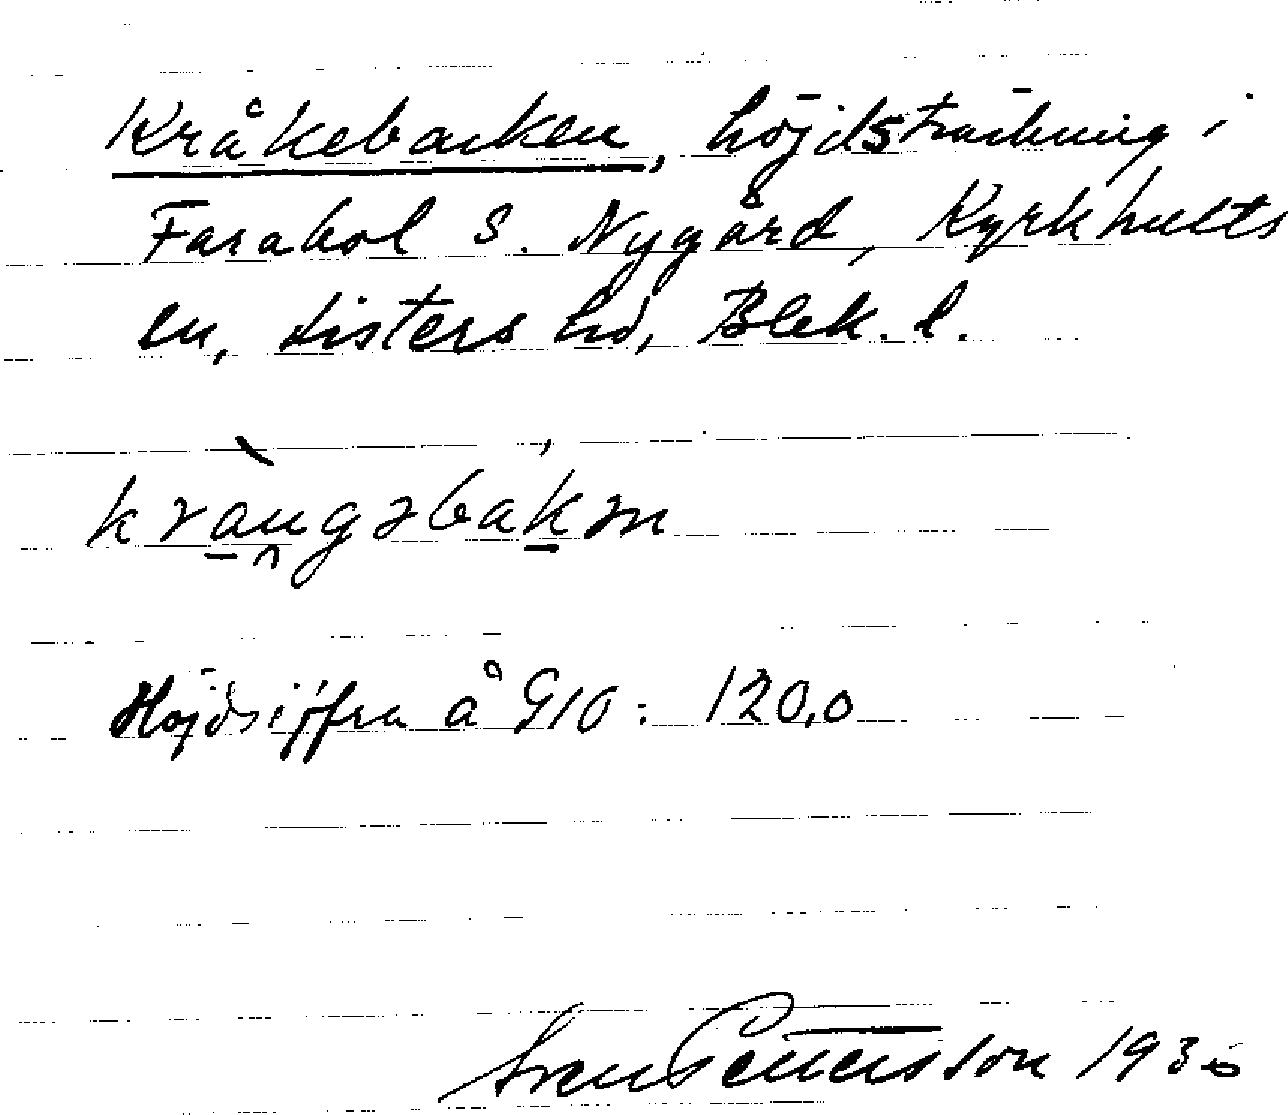 Kråkebacken, höjdsträckning i
Farabol S. Nygård, Kyrkhults
sn, Listers hd, Blek. l.
Höjdsiffra å G10: 120,0
Sven Pettersson 193